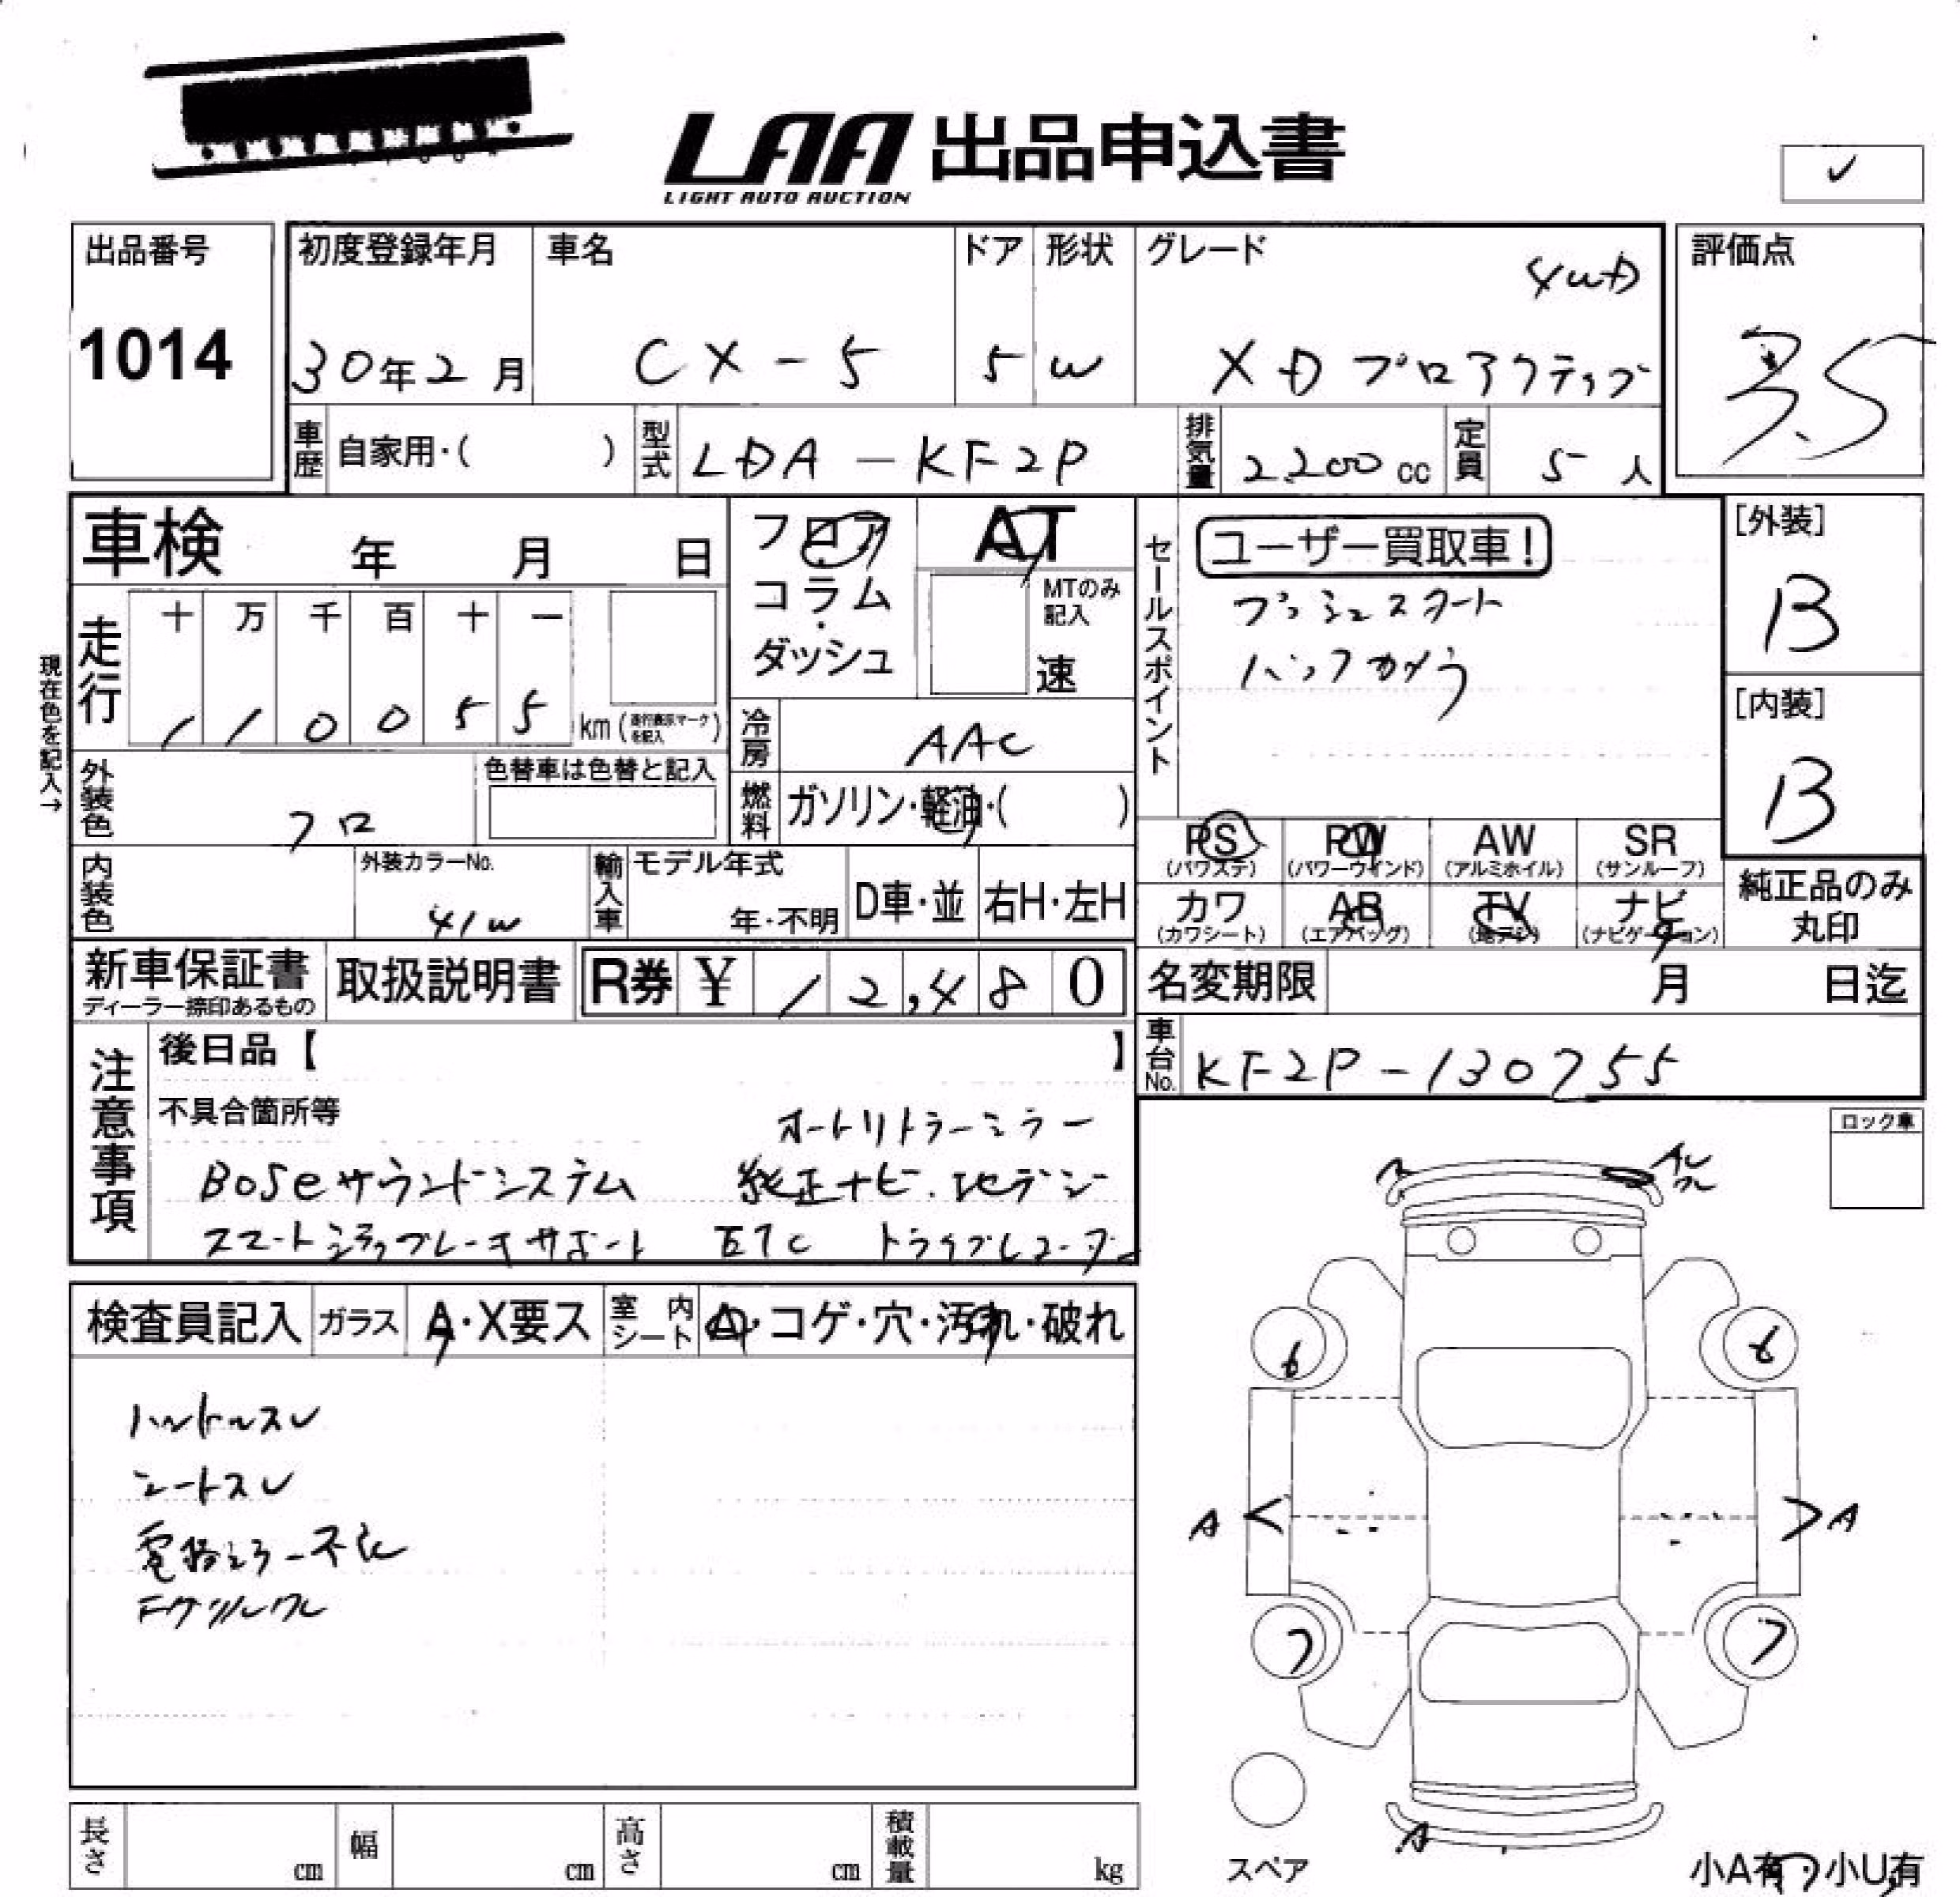 LAA 出品申込書
LIGHT AUTO AUCTION
出品番号
1014
初度登録年月
30年2月
車名
CX-5
ドア
5
形状
W
グレード
4WD
XD プロアクティブ
評価点
3.5
車歴
自家用・( )
型式
LDA-KF2P
排気量
2200cc
定員
5人
車検 年 月 日
フロア
コラム
ダッシュ
AT
MTのみ記入
速
セールスポイント
ユーザー買取車!
プッシュスタート
バックカメラ
[外装]
B
[内装]
B
現在色を記入→
走行
十 万 千 百 十 一
1 1 0 0 5 5 km (走行表示マークを記入)
冷房
AAC
外装色
クロ
色替車は色替と記入
燃料
ガソリン・軽油・( )
PS (パワステ)
PW (パワーウインド)
AW (アルミホイル)
SR (サンルーフ)
カワ (カワシート)
AB (エアバッグ)
TV (地デジ)
ナビ (ナビゲーション)
純正品のみ丸印
内装色
外装カラーNo.
41W
輸入車
モデル年式
年・不明
D車・並
右H・左H
新車保証書
ディーラー捺印あるもの
取扱説明書
R券 ¥ 12,480
名変期限 月 日迄
車台No.
KF2P-130755
注意事項
後日品【 】
不具合箇所等
オートリトラミラー
BOSEサウンドシステム 純正ナビ.地デジ
スマートシティブレーキサポート ETC ドライブレコーダー
ロック車
検査員記入
ガラス
A・X要ス
室内シート
A・コゲ・穴・汚れ・破れ
ハンドルスレ
シートスレ
電格ミラー不化
A
6 6
A A
7 7
A
スペア
小A有・小U有
長さ cm
幅 cm
高さ cm
積載量 kg